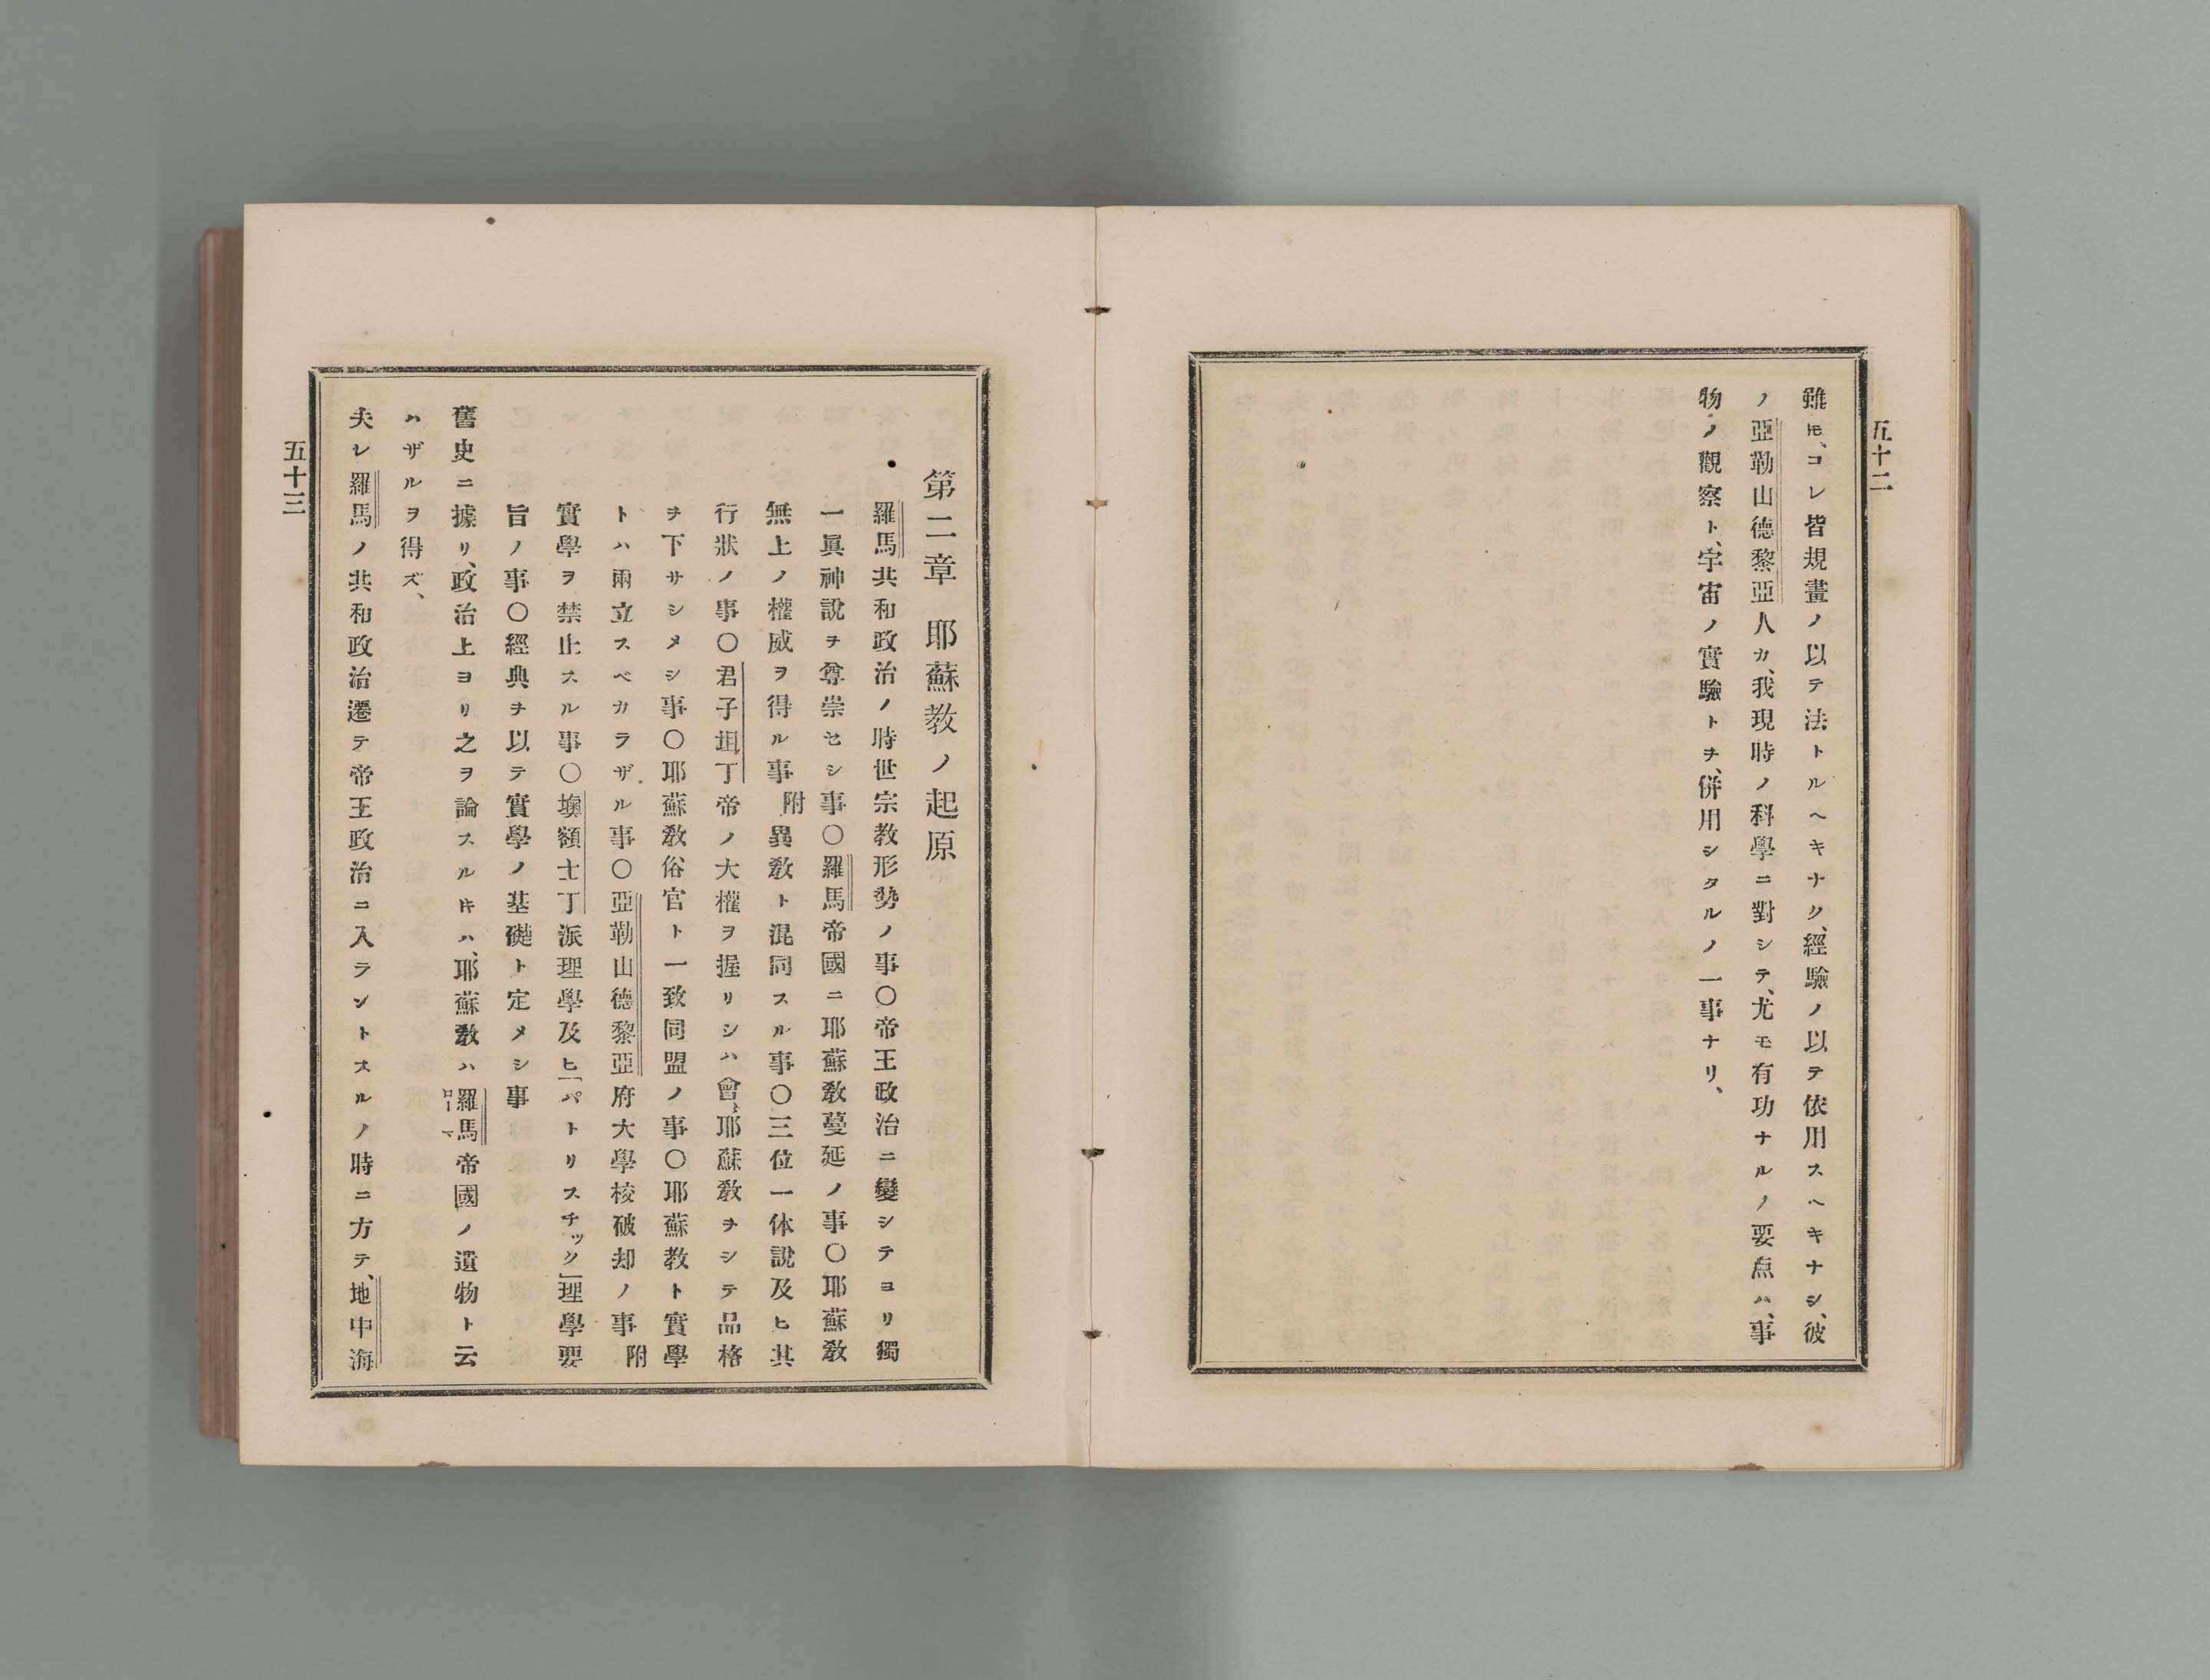 五十二
雖𪜈、コレ皆規畫ノ以テ法トルヘキナク、經驗ノ以テ依用スヘキナシ、彼
ノ亞勒山德黎亞人カ、我現時ノ科學ニ對シテ、尤モ有功ナルノ要点ハ、事
物ノ觀察ト、宇宙ノ實驗トヲ、併用シタルノ一事ナリ、
第二章　耶蘇教ノ起原
羅馬共和政治ノ時世宗教形勢ノ事〇帝王政治ニ變シテヨリ獨
一眞神說ヲ尊崇セシ事〇羅馬帝國ニ耶蘇教蔓延ノ事〇耶蘇教
無上ノ權威ヲ得ル事附異敎ト混同スル事〇三位一体說及ヒ其
行狀ノ事〇君子坦丁帝ノ大權ヲ握リシハ會〻耶蘇敎ヲシテ品格
ヲ下サシメシ事〇耶蘇敎俗官ト一致同盟ノ事〇耶蘇教ト實學
トハ兩立スベカラザル事〇亞勒山德黎亞府大學校破却ノ事附
實學ヲ禁止スル事〇墺額士丁派理學及ヒ「パトリスチック」理學要
旨ノ事〇經典ヲ以テ實學ノ基礎ト定メシ事
舊史ニ據リ、政治上ヨリ之ヲ論スル𪜈ハ、耶蘇敎ハ羅馬帝國ノ遺物ト云
ローマ
ハザルヲ得ズ、
夫レ羅馬ノ共和政治遷テ帝王政治ニ入ラントスルノ時ニ方テ、地中海
五十三